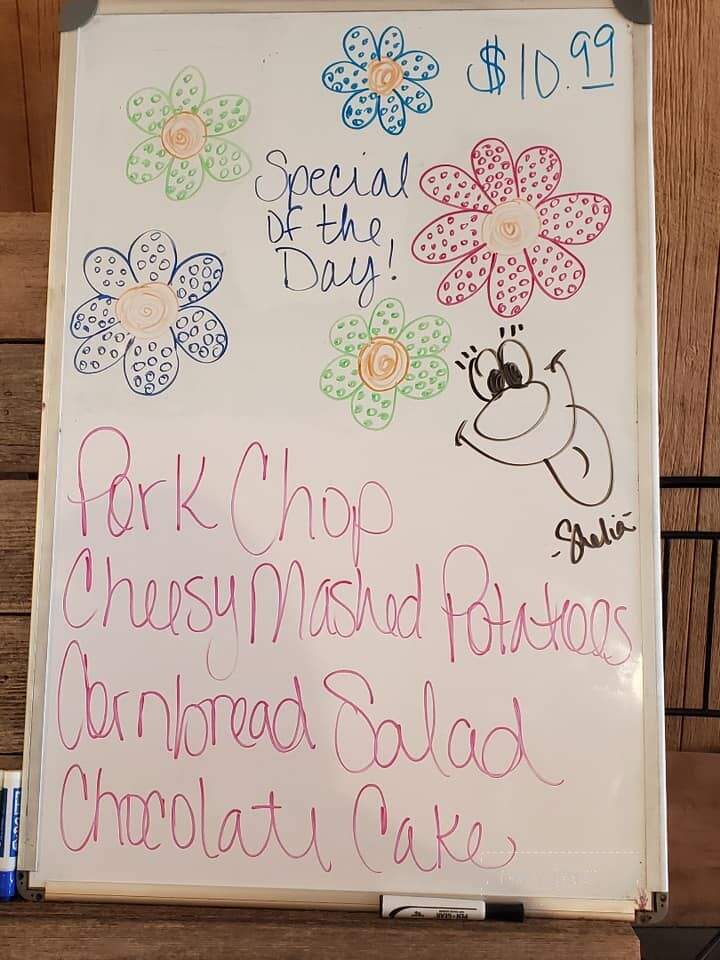 $10.99
Special
Of the
Day!
-Shelia-
Pork Chop
Cheesy Mashed Potatoes
Cornbread Salad
Chocolate Cake